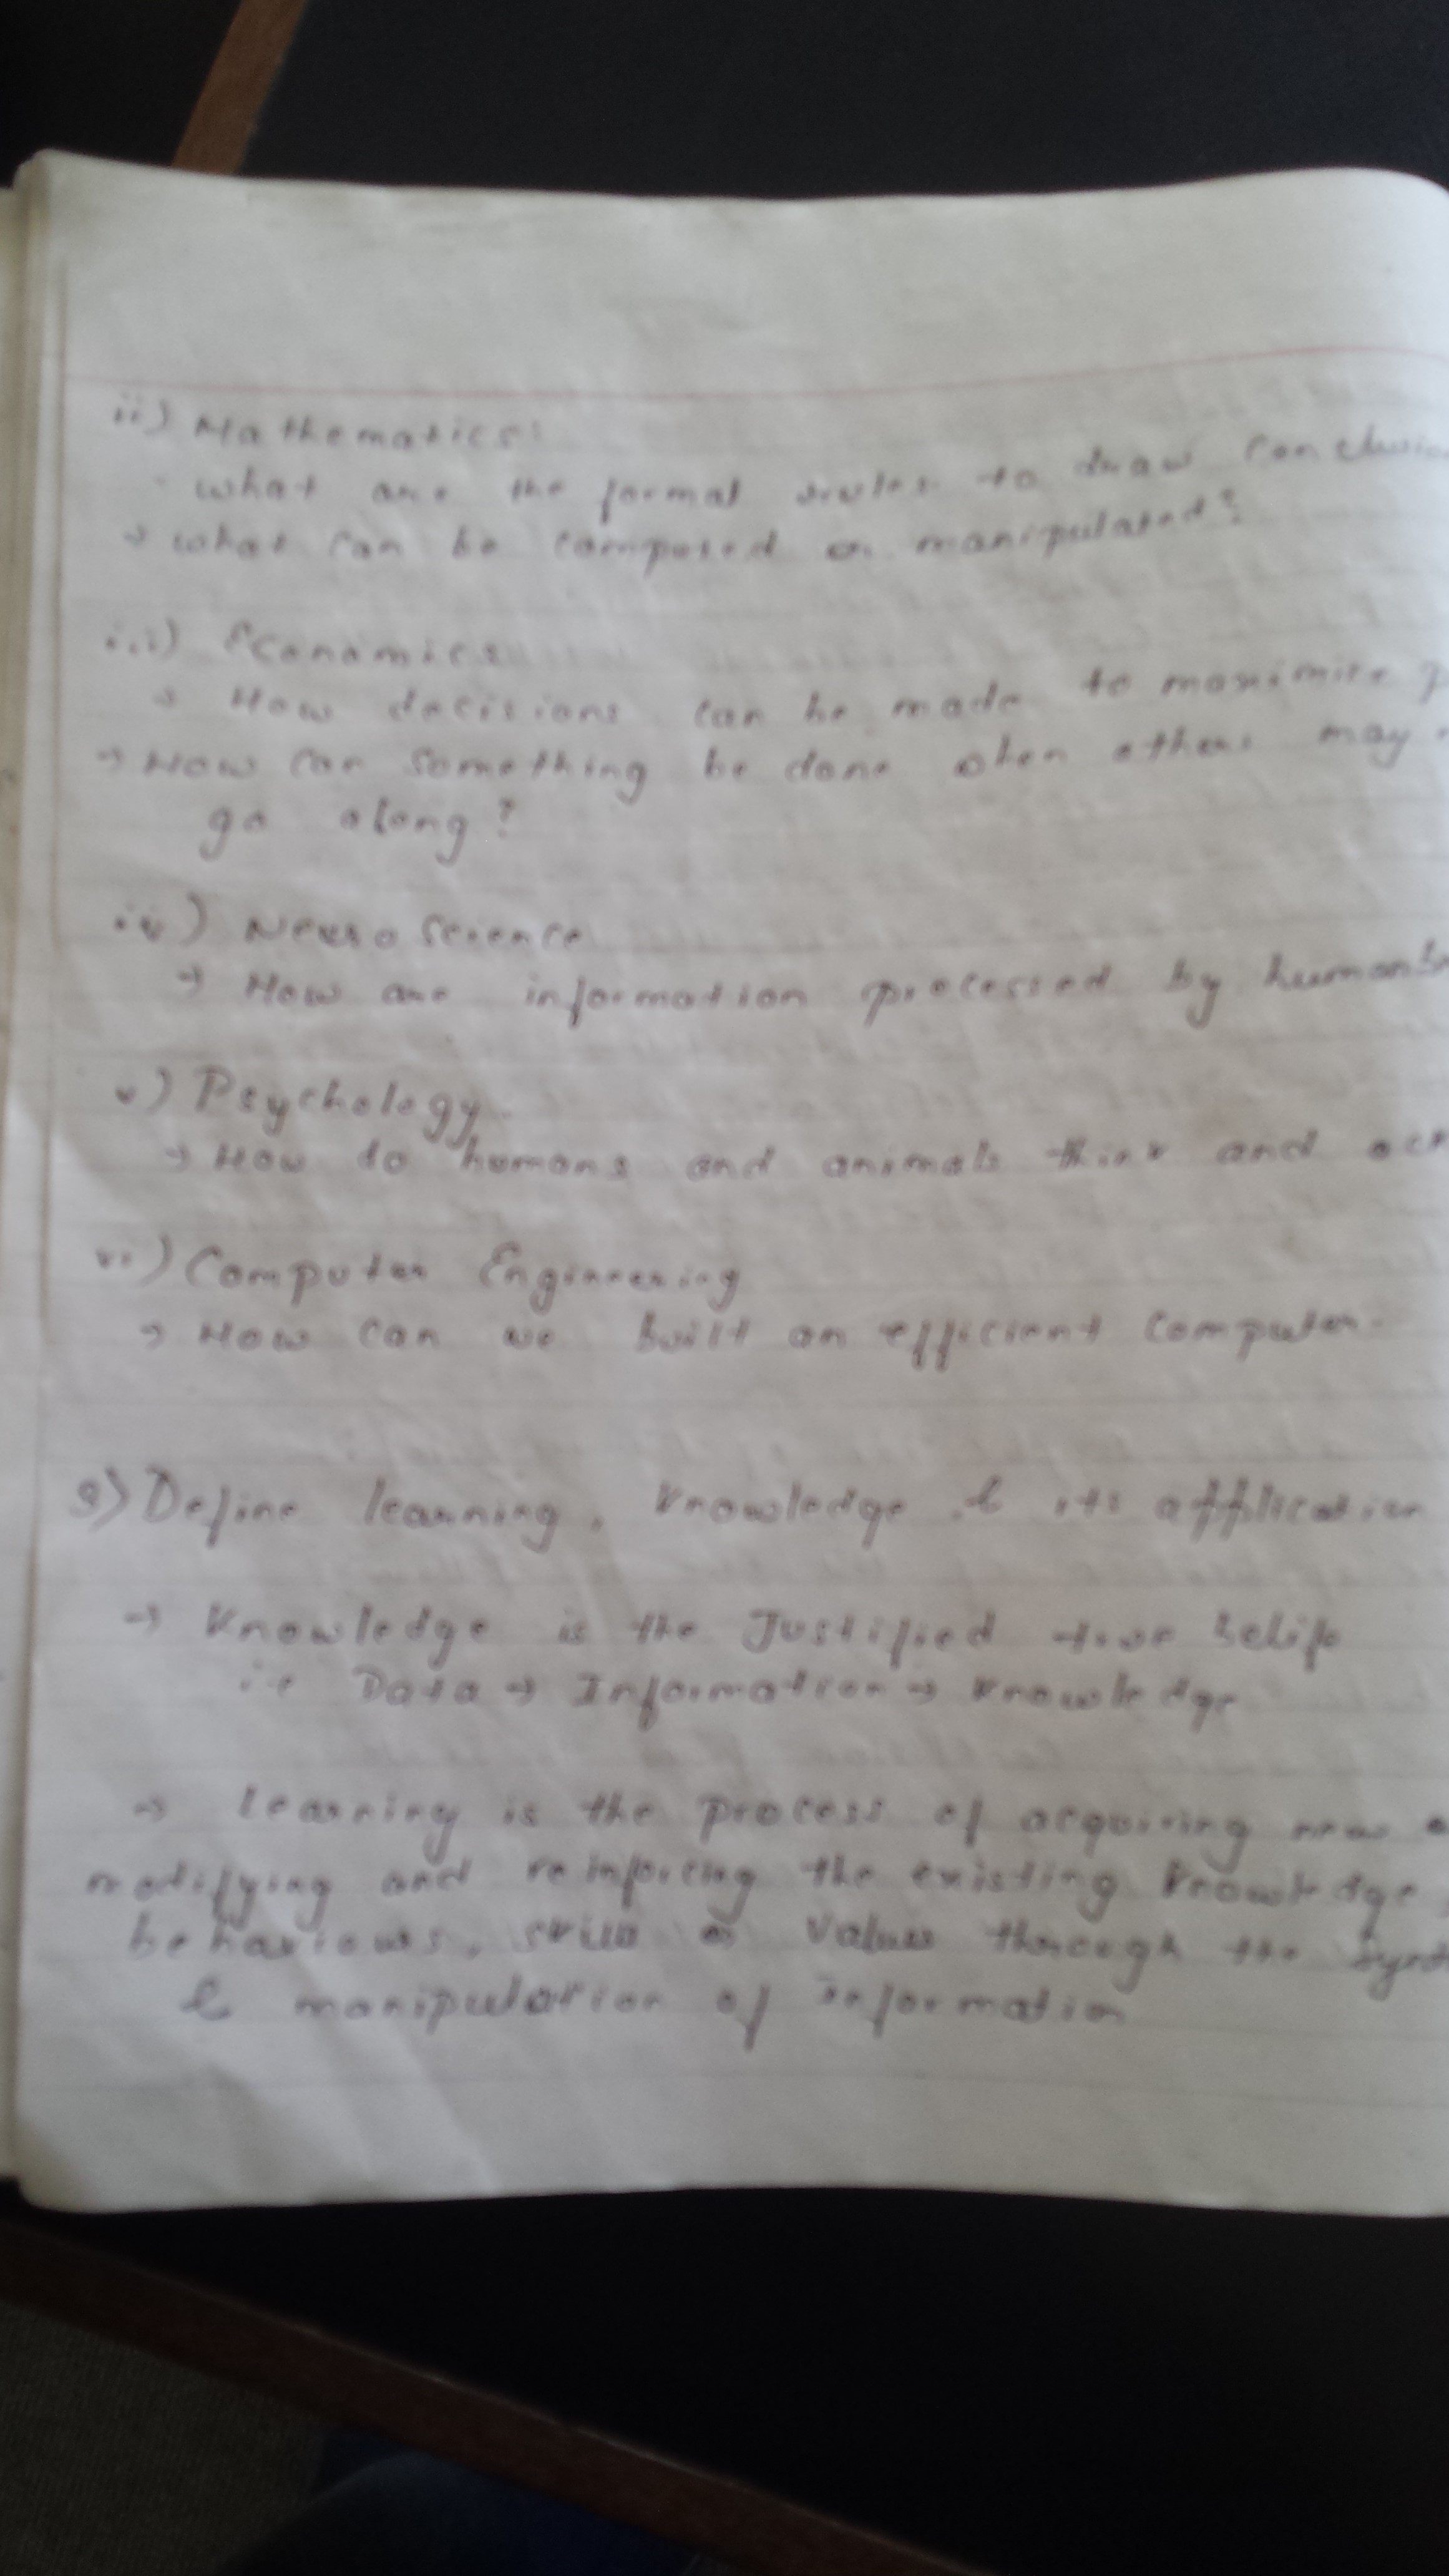 ii) Mathematics:
- what are the formal rules to draw conclusion
→ what can be composed or manipulated?
iii) Economics
→ How decisions can be made to maximize p
→ How can something be done when others may
go along?
iv) Neuro Science
→ How are information processed by human
v) Psychology
→ How do humans and animals think and act
vi) Computer Engineering
→ How can we built an efficient computer.
Define learning, knowledge & its application
→ Knowledge is the Justified true belife
i.e Data → Information → knowledge
→ learning is the process of acquiring new
modifying and reinforcing the existing knowledge,
behaviours, skills or values through the
& manipulation of information